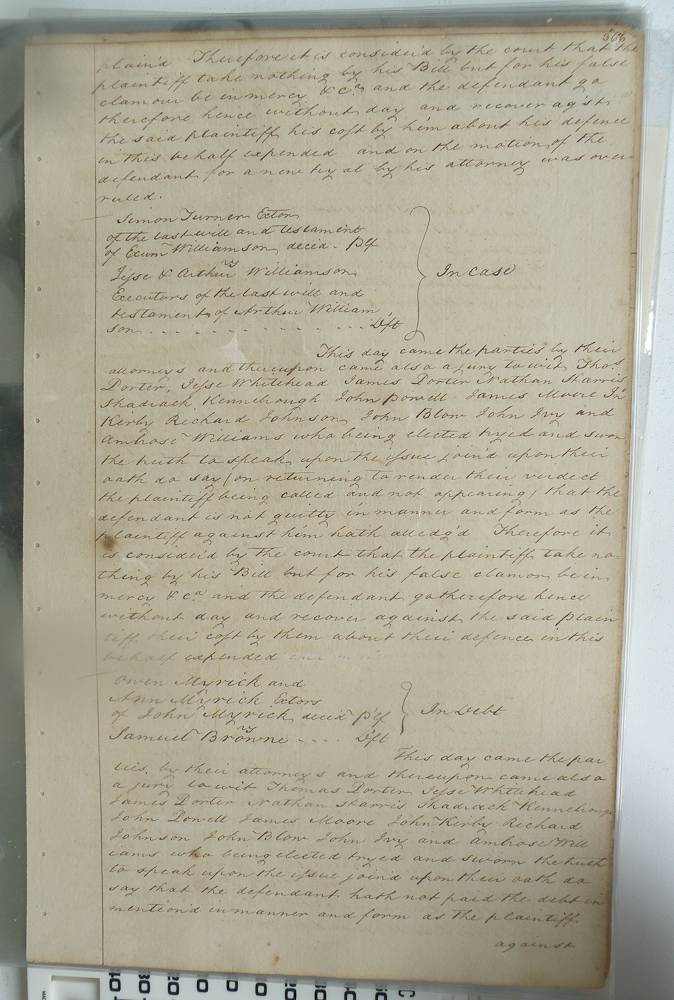 566
plain'd Therefore it is consider'd by the court that the
plaintiff take nothing by his Bill but for his false
clamour be in mercy & Ca and the defendant go
therefore hence without day and recover agst
the said plaintiff his cost by him about his defence
in this behalf expended and on the motion of the
defendant for a new tryal by his attorney was over
ruled.
Simon Turner Exctor
of the last will and testament
of Exum Williamson decid. Plf
vs
Jesse & Arthur Williamson
Executors of the last will and
testament of Arthur William
son . . . . . . . . . . . Dft
In Case
This day came the parties by their
attorneys and thereupon came also a jury to wit, Thos.
Dorter, Jesse Whitehead James Dorter Nathan Harris
Shadrack Kennebrough John Powell James Moore Jn
Kerby Richard Johnson, John Blow John Ivy and
Ambrose Williams who being elected tryed and sworn
the truth to speak upon the issue join'd upon their
oath do say (on returning to render their verdict
the plaintiff being called and not appearing) that the
defendant is not guilty in manner and form as the
plaintiff against him hath alledg'd Therefore it
is consider'd by the court that the plaintiff take no
thing by his Bill but for his false clamor be in
mercy & Ca and the defendant go therefore hence
without day and recover against the said plain
tiff their cost by them about their defence in this
behalf expended
Owen Myrick and
Ann Myrick Exctors
of John Myrick decid Plf
vs
Samuel Browne . . . . Dft
In Debt
This day came the par
ties by their attorneys and thereupon came also
a jury to wit Thomas Dorter Jesse Whitehead
James Dorter Nathan Harris Shadrack Kennebrough
John Powell James Moore John Kerby Richard
Johnson John Blow John Ivy and Ambrose Will
iams who being elected tryed and sworn the truth
to speak upon the issue join'd upon their oath do
say that the defendant hath not paid the debt in
mention'd in manner and form as the plaintiff
against